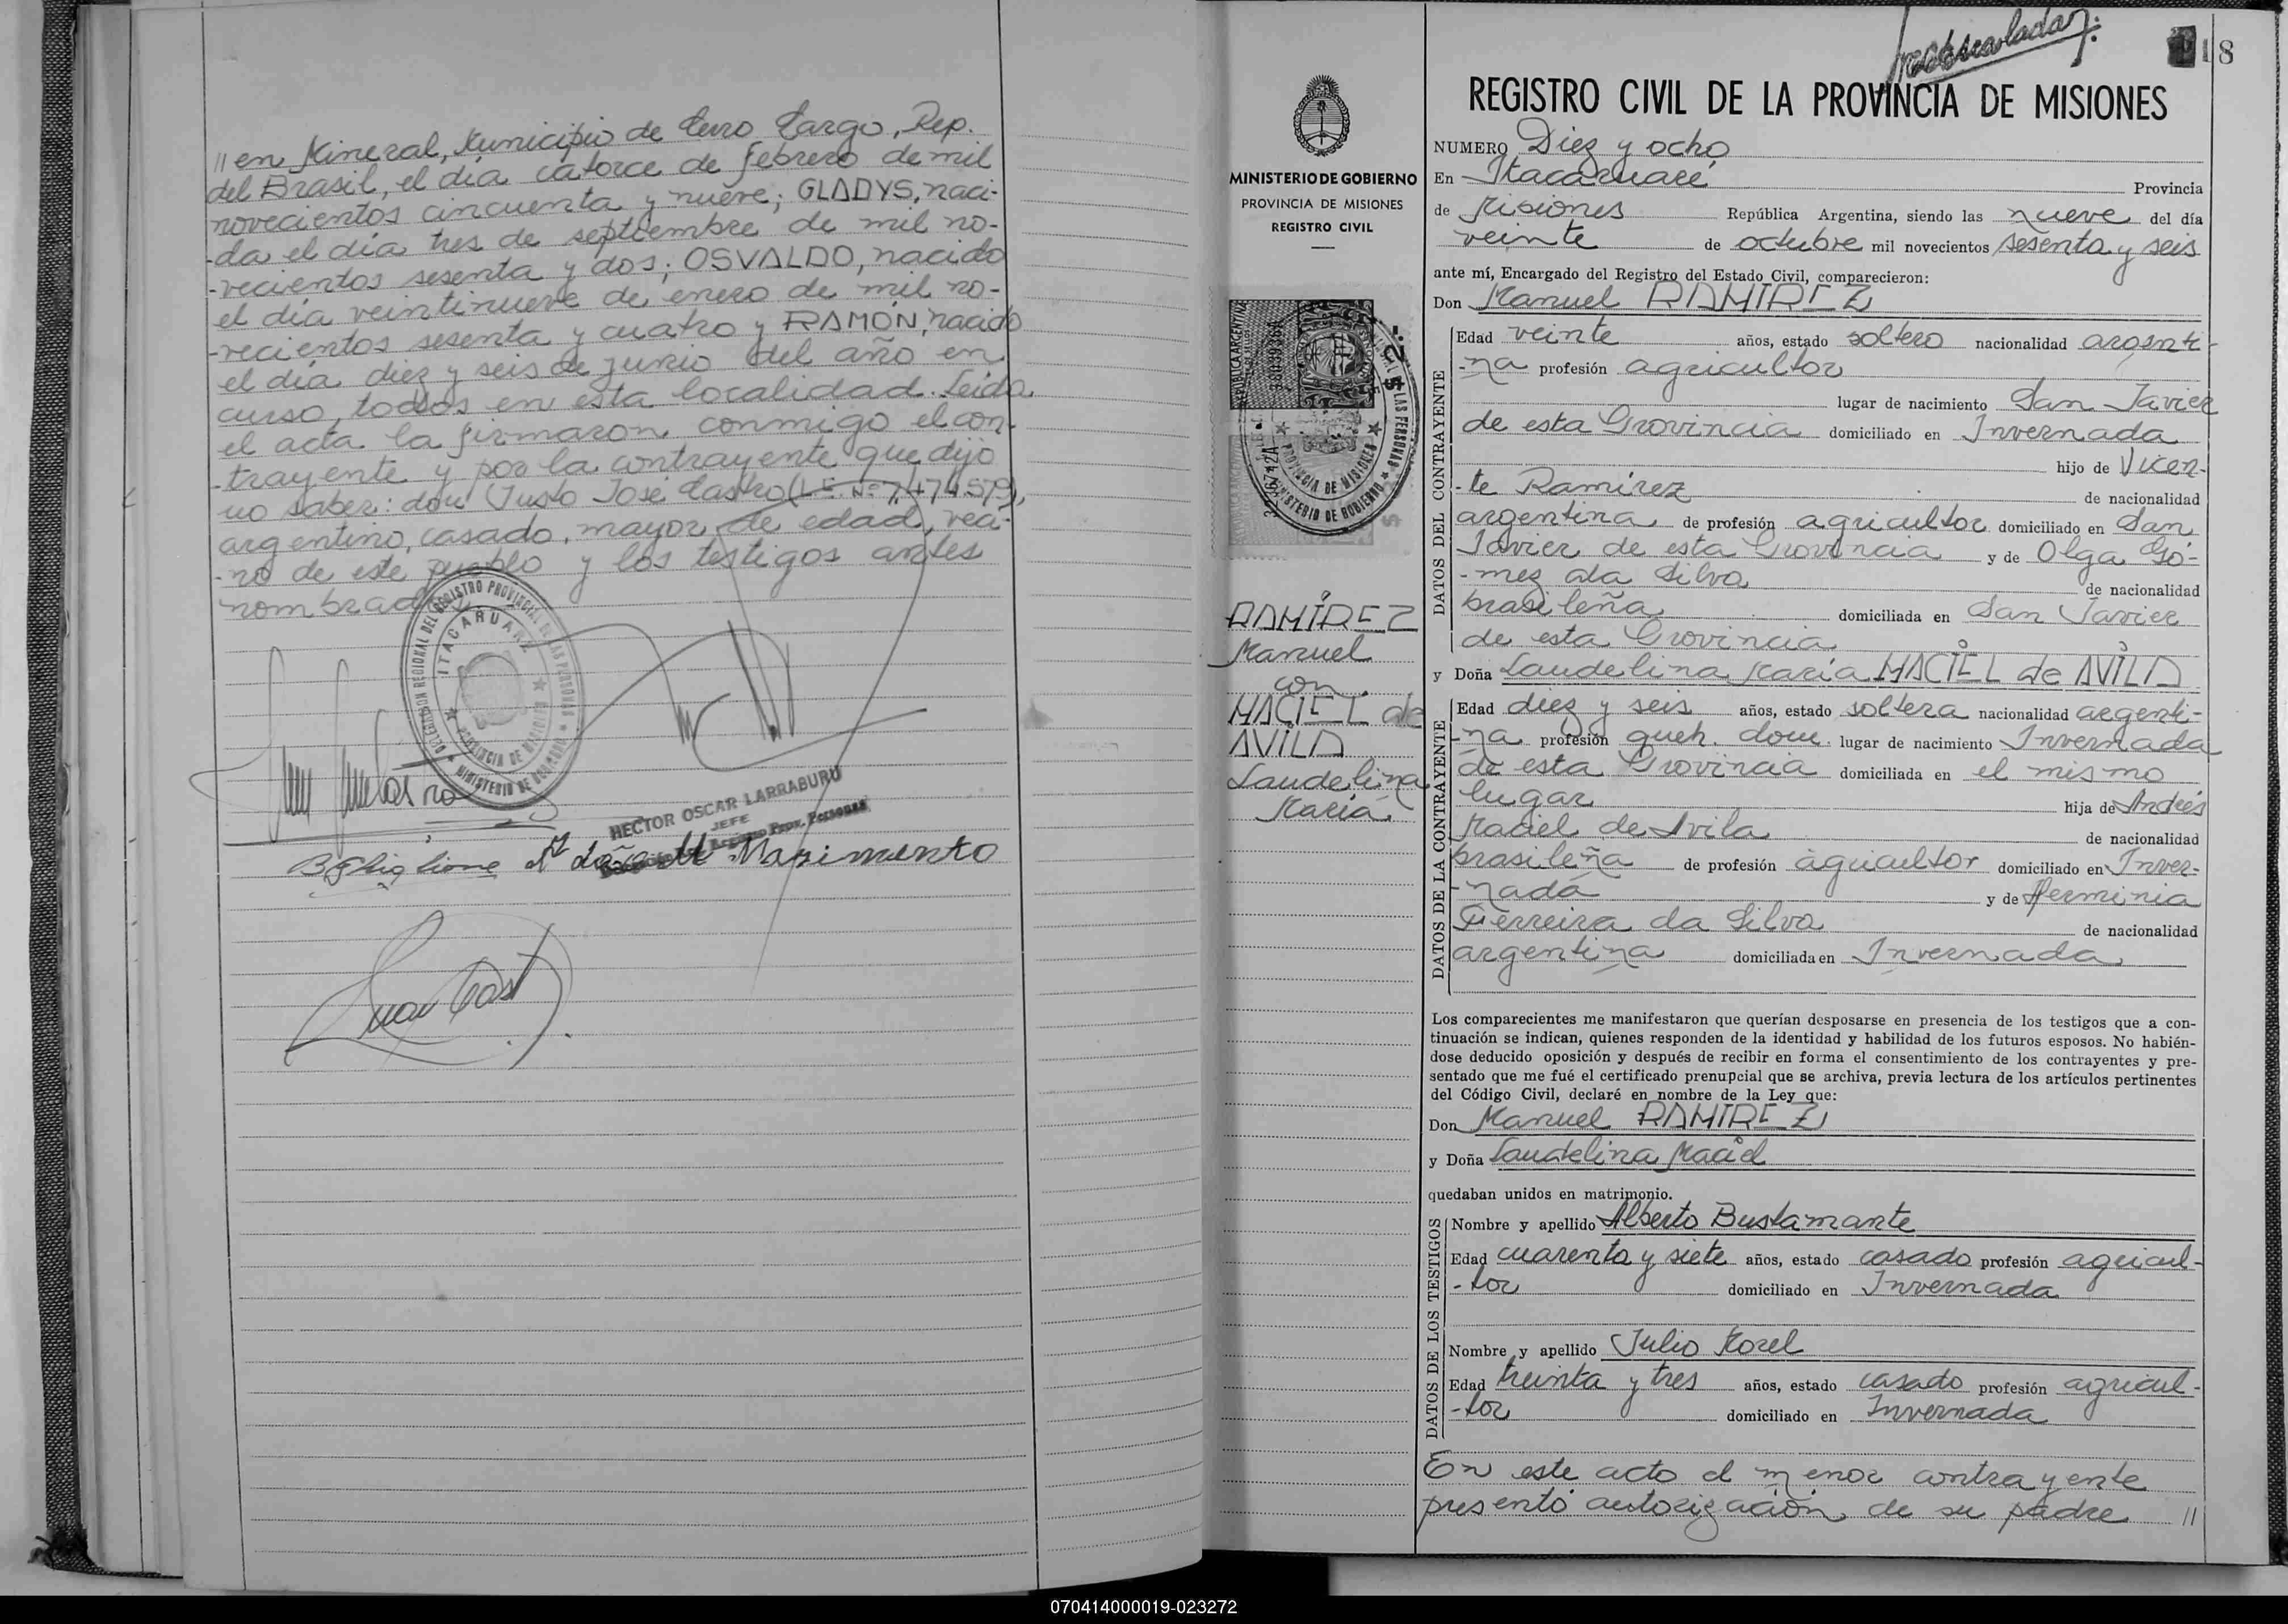 // en Mineral, Municipio de Cerro Largo, Rep.
del Brasil, el día catorce de febrero de mil
novecientos cincuenta y nueve; GLADYS, naci-
-da el día tres de septiembre de mil no-
-vecientos sesenta y dos; OSVALDO, nacido
el día veintinueve de enero de mil no-
-vecientos sesenta y cuatro y RAMÓN, nacido
el día diez y seis de junio del año en
curso, todos en esta localidad. Leída
el acta la firmaron conmigo el con-
-trayente y por la contrayente que dijo
no saber: don Justo José Castro (L.E. Nº 7.474.579),
argentino, casado, mayor de edad, veci-
-no de este pueblo y los testigos antes
nombrados.
DELEGACION REGIONAL DEL REGISTRO PROVINCIAL DE LAS PERSONAS
ITACARUARE
PROVINCIA DE MISIONES
MINISTERIO DE GOBIERNO
HECTOR OSCAR LARRABURU
JEFE
Marimento
MINISTERIO DE GOBIERNO
PROVINCIA DE MISIONES
REGISTRO CIVIL
REPUBLICA ARGENTINA
PROVINCIA DE MISIONES
MINISTERIO DE GOBIERNO
LAS PERSONAS
RAMÍREZ
Manuel
con
MACIEL de
AVILA
Laudelina
María
18
REGISTRO CIVIL DE LA PROVINCIA DE MISIONES
NUMERO Diez y ocho
En Itacaruaré Provincia
de Misiones República Argentina, siendo las nueve del día
veinte de octubre mil novecientos sesenta y seis
ante mí, Encargado del Registro del Estado Civil, comparecieron:
Don Manuel RAMIREZ
DATOS DEL CONTRAYENTE
Edad veinte años, estado soltero nacionalidad argenti-
-na profesión agricultor
lugar de nacimiento San Javier
de esta Provincia domiciliado en Invernada
hijo de Vicen-
-te Ramírez de nacionalidad
argentina de profesión agricultor domiciliado en San
Javier de esta Provincia y de Olga Gó-
-mez da Silva de nacionalidad
brasileña domiciliada en San Javier
de esta Provincia
y Doña Laudelina María MACIEL de AVILA
DATOS DE LA CONTRAYENTE
Edad diez y seis años, estado soltera nacionalidad argenti-
-na profesión queh. dom. lugar de nacimiento Invernada
de esta Provincia domiciliada en el mismo
lugar hija de Andrés
Maciel de Avila de nacionalidad
brasileña de profesión agricultor domiciliado en Inver-
-nada y de Herminia
Ferreira da Silva de nacionalidad
argentina domiciliada en Invernada
Los comparecientes me manifestaron que querían desposarse en presencia de los testigos que a con-
tinuación se indican, quienes responden de la identidad y habilidad de los futuros esposos. No habién-
dose deducido oposición y después de recibir en forma el consentimiento de los contrayentes y pre-
sentado que me fué el certificado prenupcial que se archiva, previa lectura de los artículos pertinentes
del Código Civil, declaré en nombre de la Ley que:
Don Manuel RAMIREZ
y Doña Laudelina Maciel
quedaban unidos en matrimonio.
DATOS DE LOS TESTIGOS
Nombre y apellido Alberto Bustamante
Edad cuarenta y siete años, estado casado profesión agricul-
-tor domiciliado en Invernada
Nombre y apellido Julio Morel
Edad treinta y tres años, estado casado profesión agricul-
-tor domiciliado en Invernada
En este acto el menor contrayente
presentó autorización de su padre //
070414000019-023272